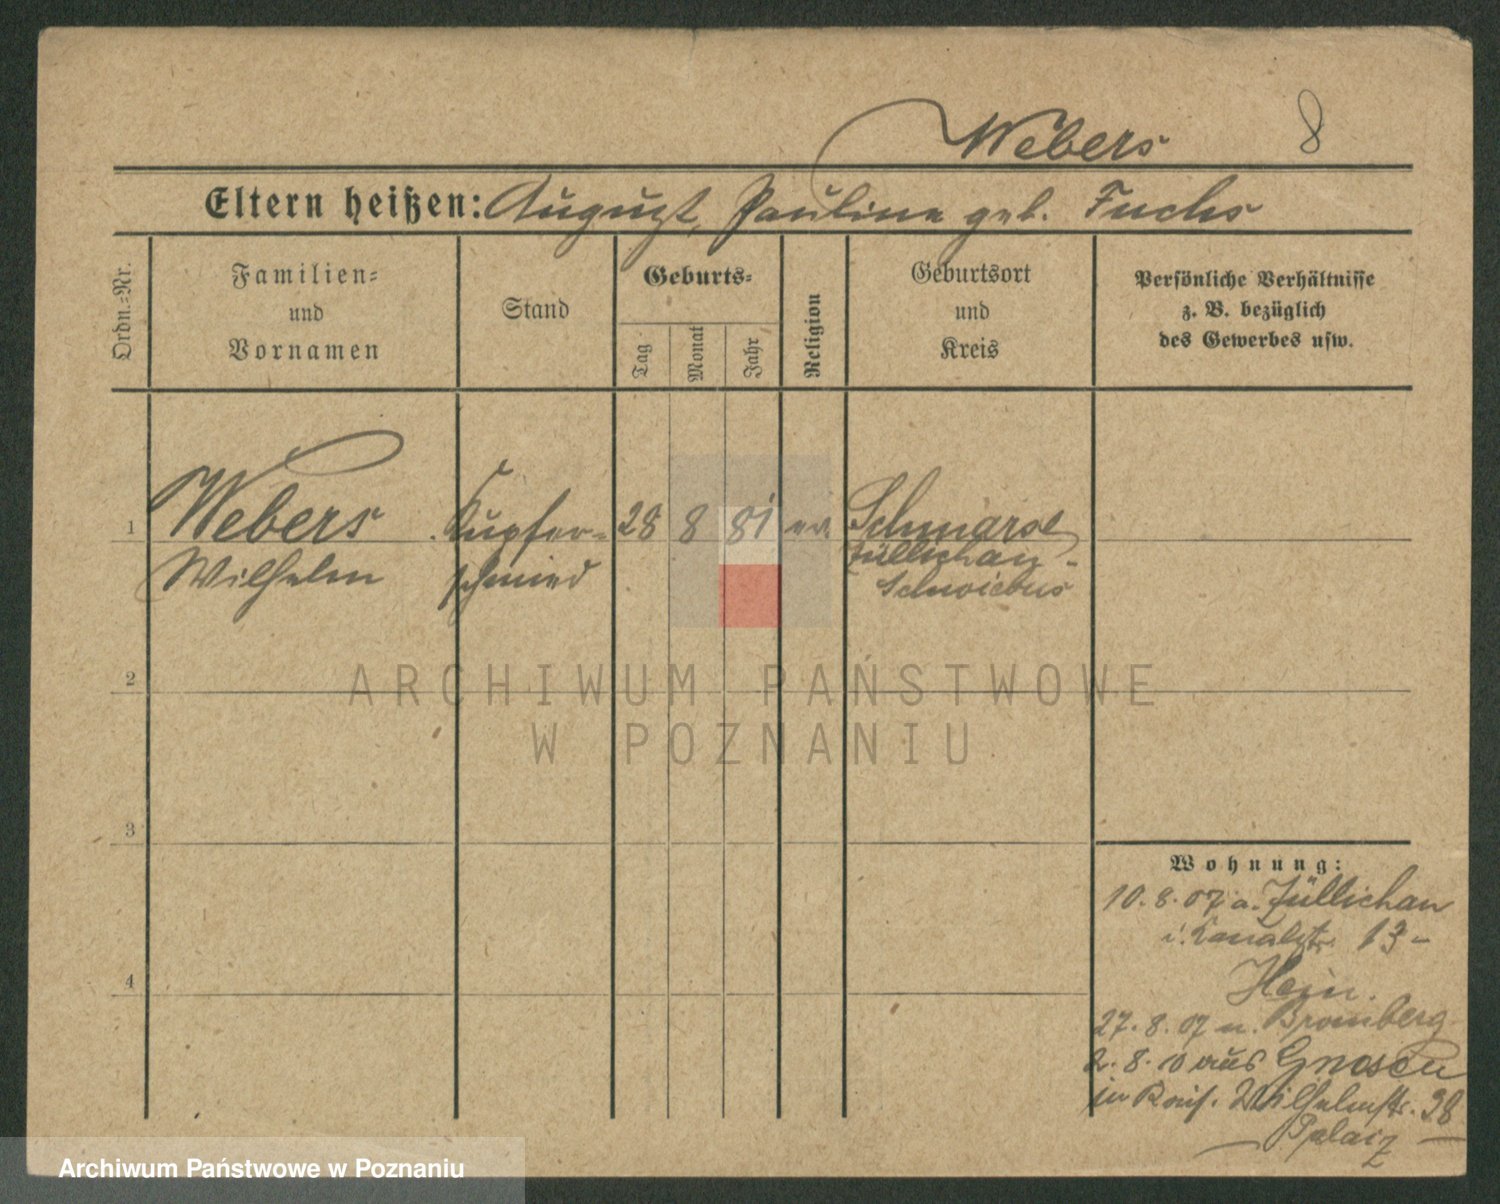 Webers 8
Eltern heißen: August, Pauline geb. Fuchs
Ordn.=Nr.
Familien=
und
Vornamen
Stand
Geburts=
Tag
Monat
Jahr
Religion
Geburtsort
und
Kreis
Persönliche Verhältnisse
z. B. bezüglich
des Gewerbes usw.
1 Webers Kupfer= 28 8 81 ev. Schmarse
Wilhelm schmied Züllichau-
Schwiebus
2
3
4
Wohnung:
10.8.07 a. Züllichau
i. Kanalstr. 13-
Hein.
27.8.07 n. Bromberg
2.8.10 aus Gnesen
in Kais. Wilhelmstr. 28
ARCHIWUM PAŃSTWOWE
W POZNANIU
Archiwum Państwowe w Poznaniu